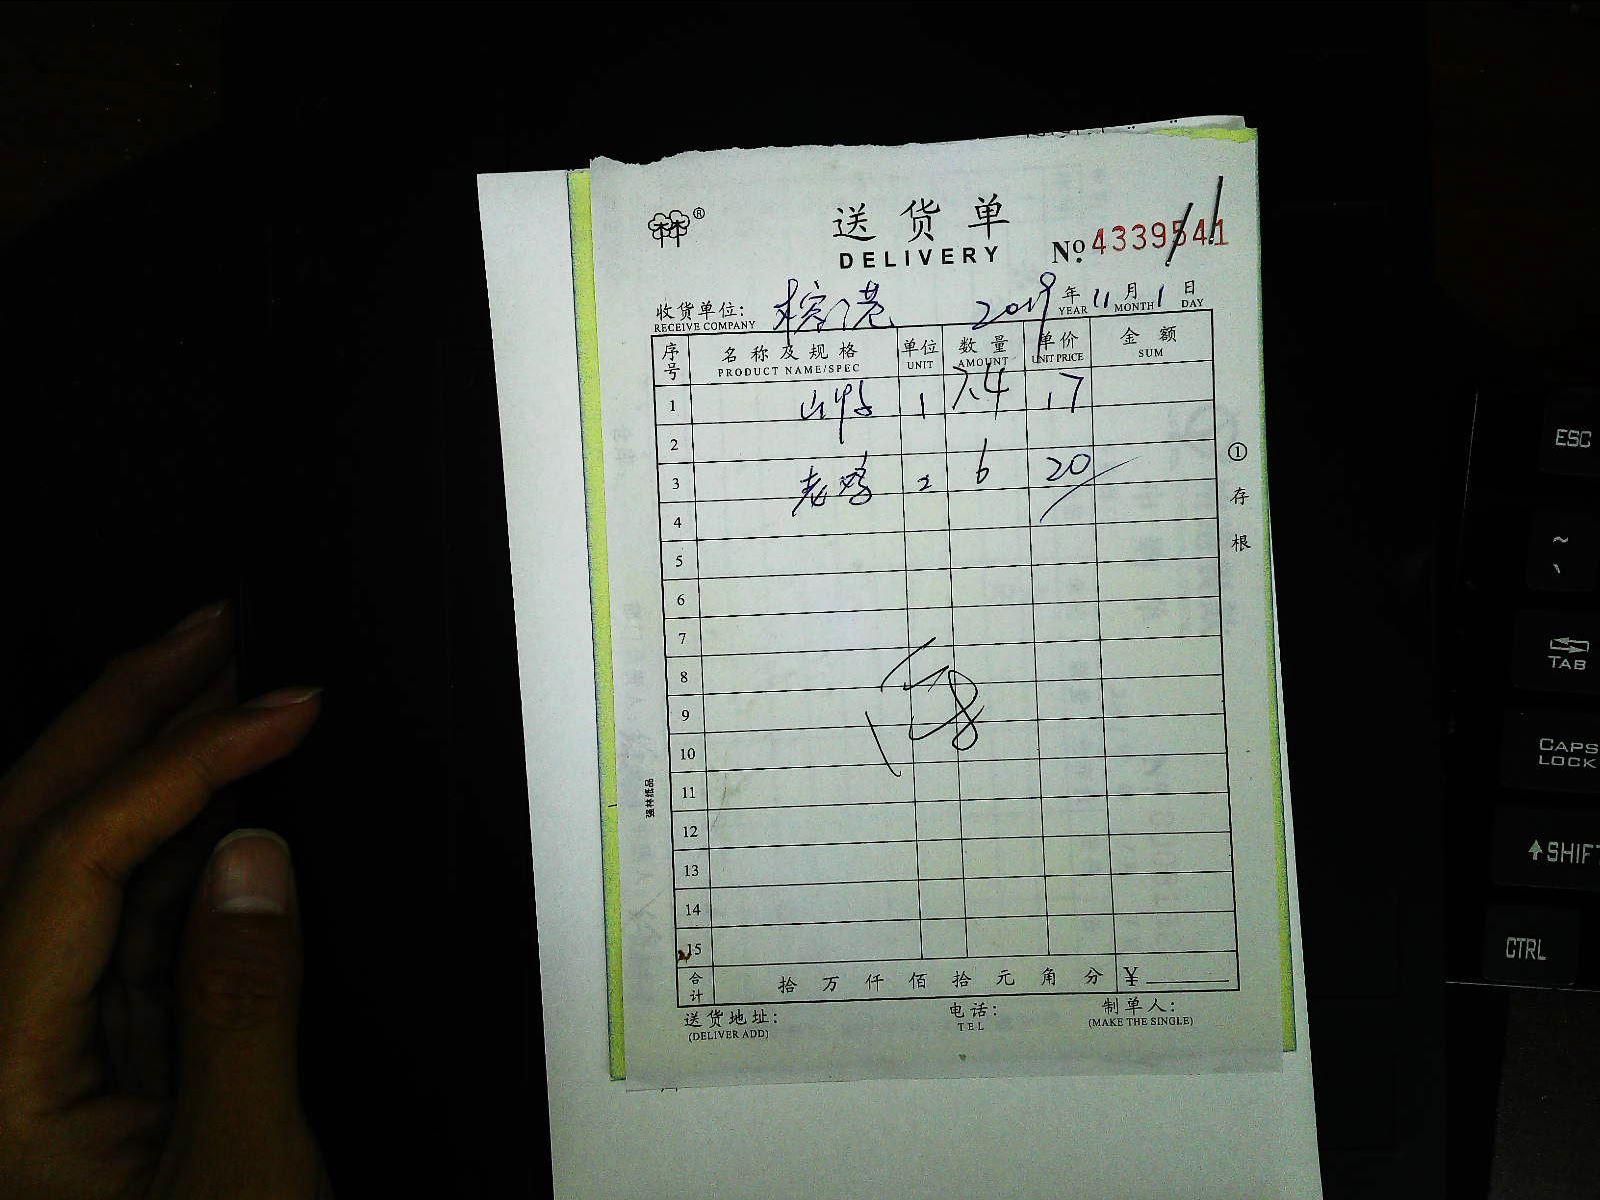 送货单
DELIVERY
№ 4339541
收货单位: 榕港 2019 年 11 月 1 日
RECEIVE COMPANY YEAR MONTH DAY
序号 名称及规格 单位 数量 单价 金额
PRODUCT NAME/SPEC UNIT AMOUNT UNIT PRICE SUM
1 1 7.4 17
2
3 老鸡 2 6 20
4
5
6
7
8
9
10
11
12
13
14
15
合计 拾 万 仟 佰 拾 元 角 分 ¥
送货地址: 电话: 制单人:
(DELIVER ADD) TEL (MAKE THE SINGLE)
①存根
强林纸品
ESC
~
TAB
CAPS LOCK
SHIFT
CTRL